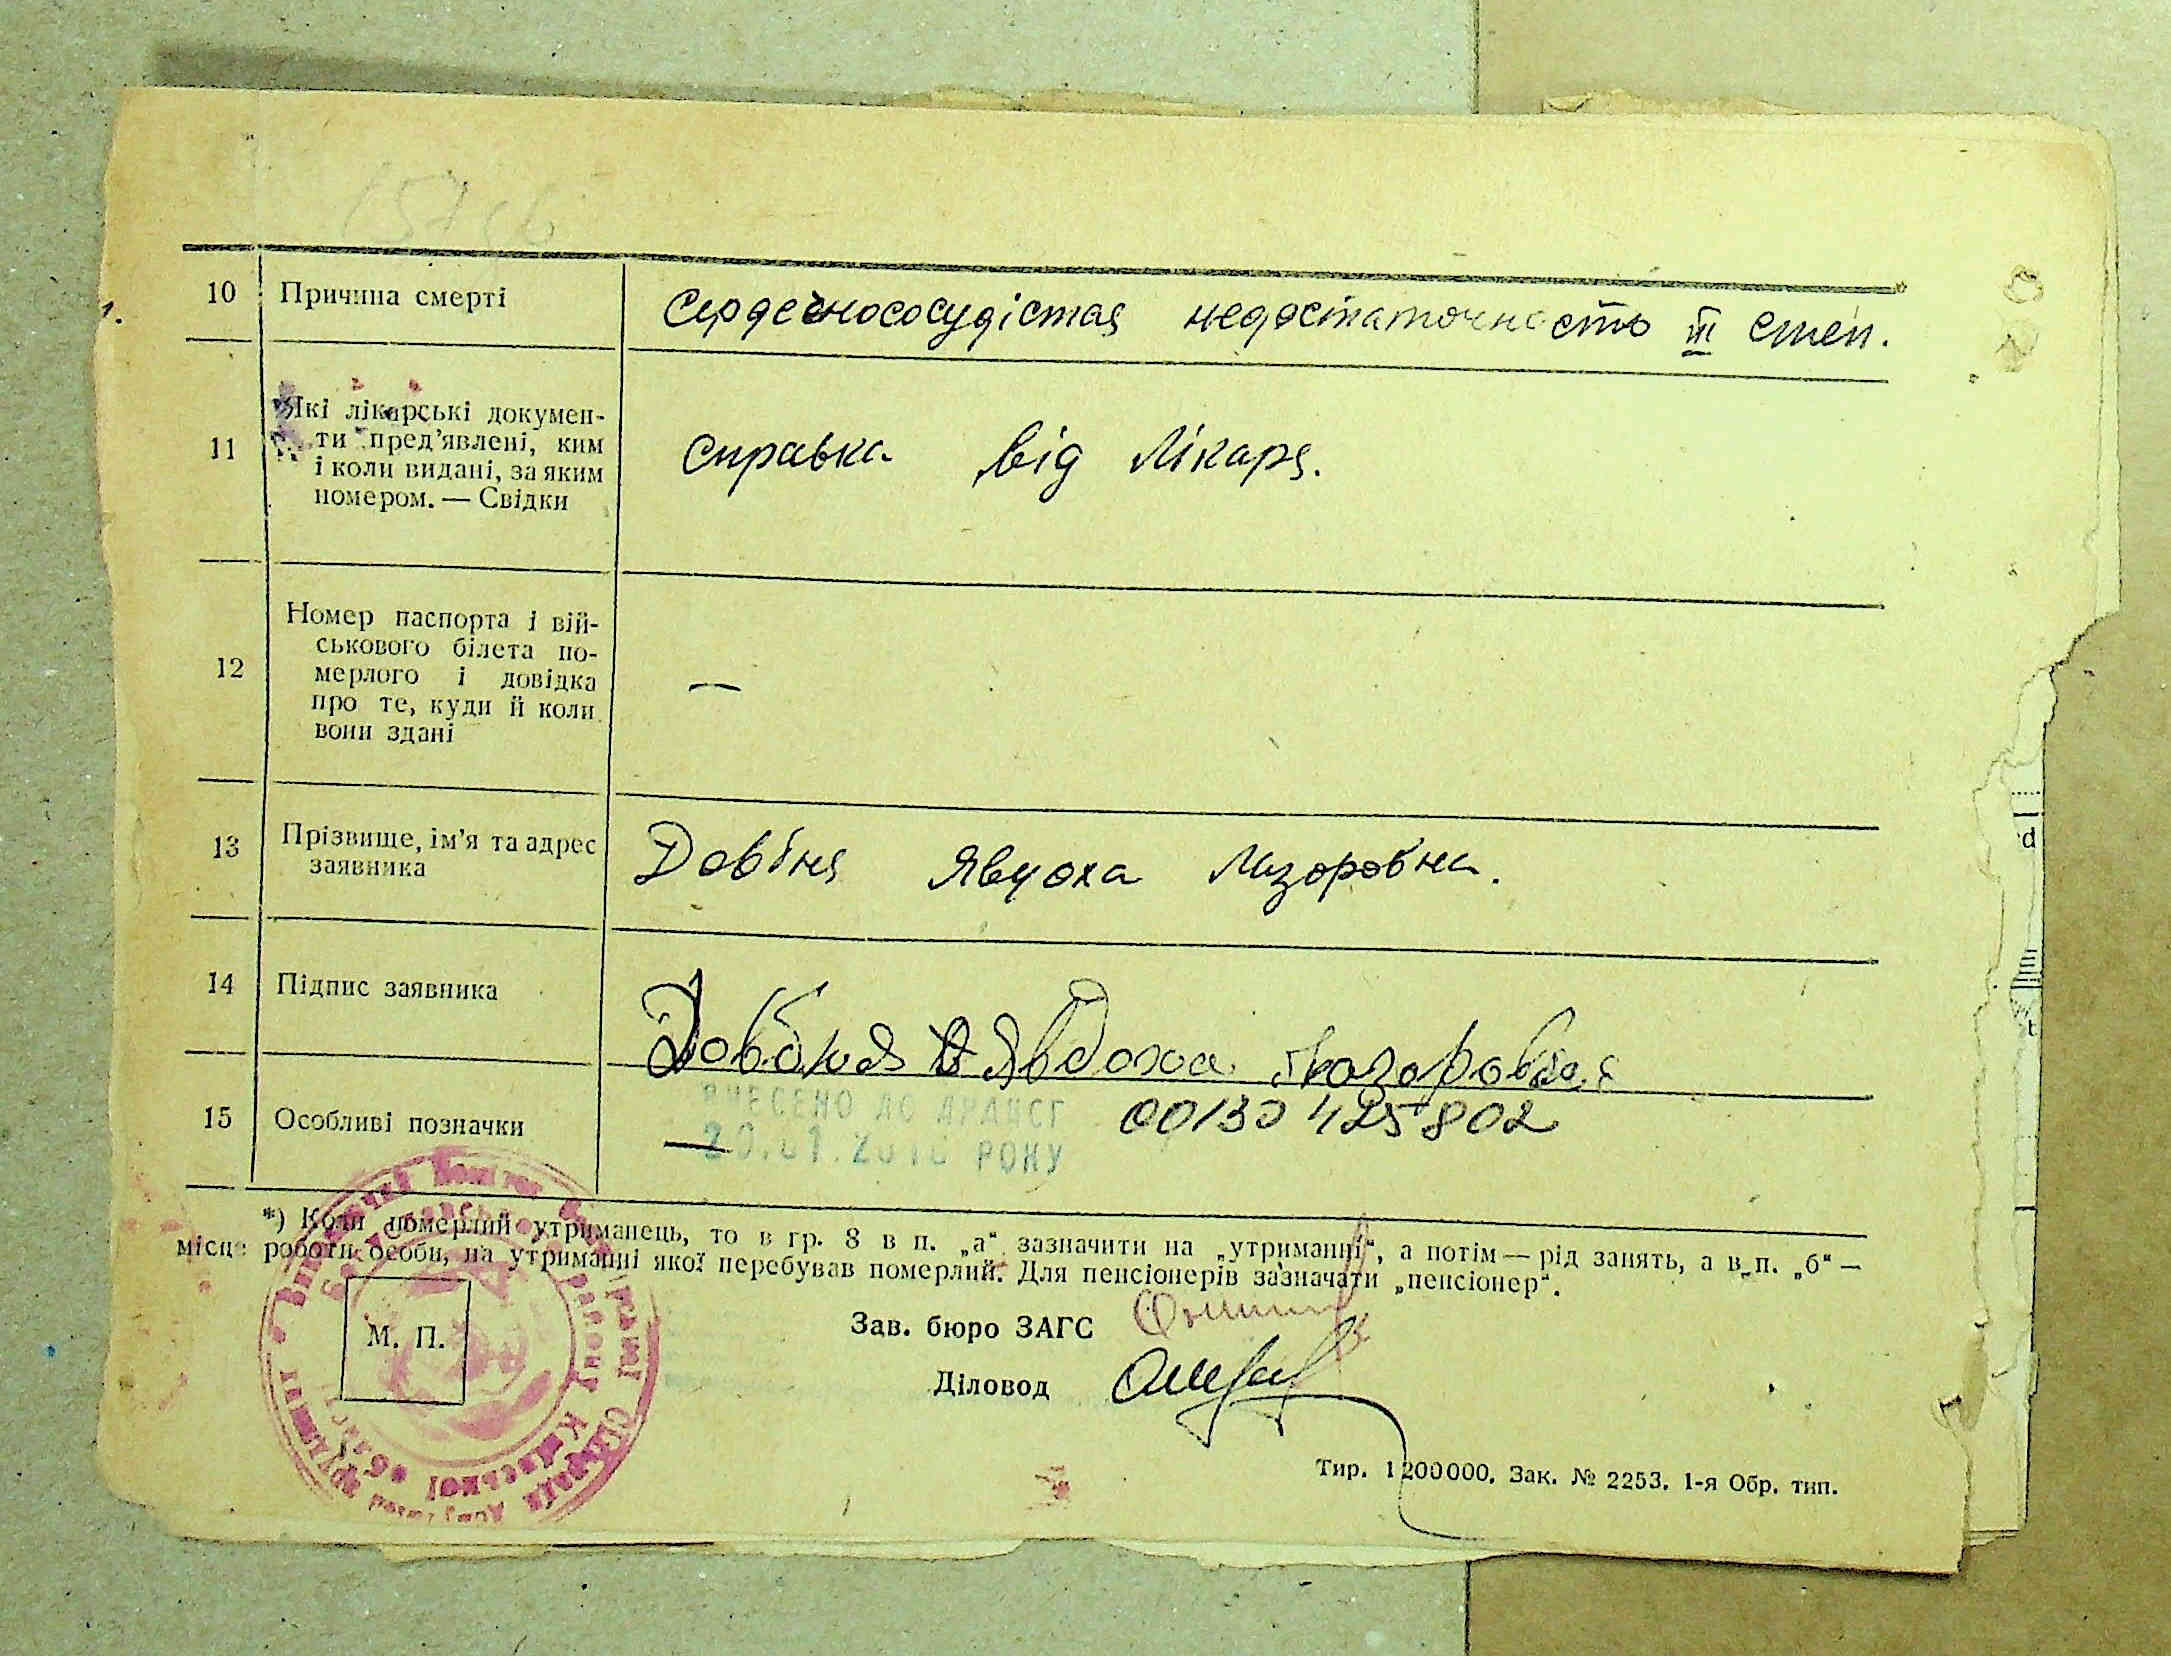 10 Причина смерті Сердечнососудістая недостаточность III степ.
11 Які лікарські докумен-
ти пред'явлені, ким
і коли видані, за яким
номером. — Свідки
Справка від Лікаря.
12 Номер паспорта і вій-
ськового білета по-
мерлого і довідка
про те, куди й коли
вони здані
—
13 Прізвище, ім'я та адрес
заявника
Довбня Явдоха Лазоровна.
14 Підпис заявника
Довбня Явдоха Лазоровна
15 Особливі позначки
ВНЕСЕНО ДО ДРАЦСГ
РОКУ
00130425802
—
*) Коли померлий утриманець, то в гр. 8 в п. „а" зазначити на „утриманні", а потім — рід занять, а в п. „б" —
місце роботи особи, на утриманні якої перебував померлий. Для пенсіонерів зазначати „пенсіонер".
М. П.
Зав. бюро ЗАГС
Діловод
Тир. 1200000. Зак. № 2253. 1-я Обр. тип.